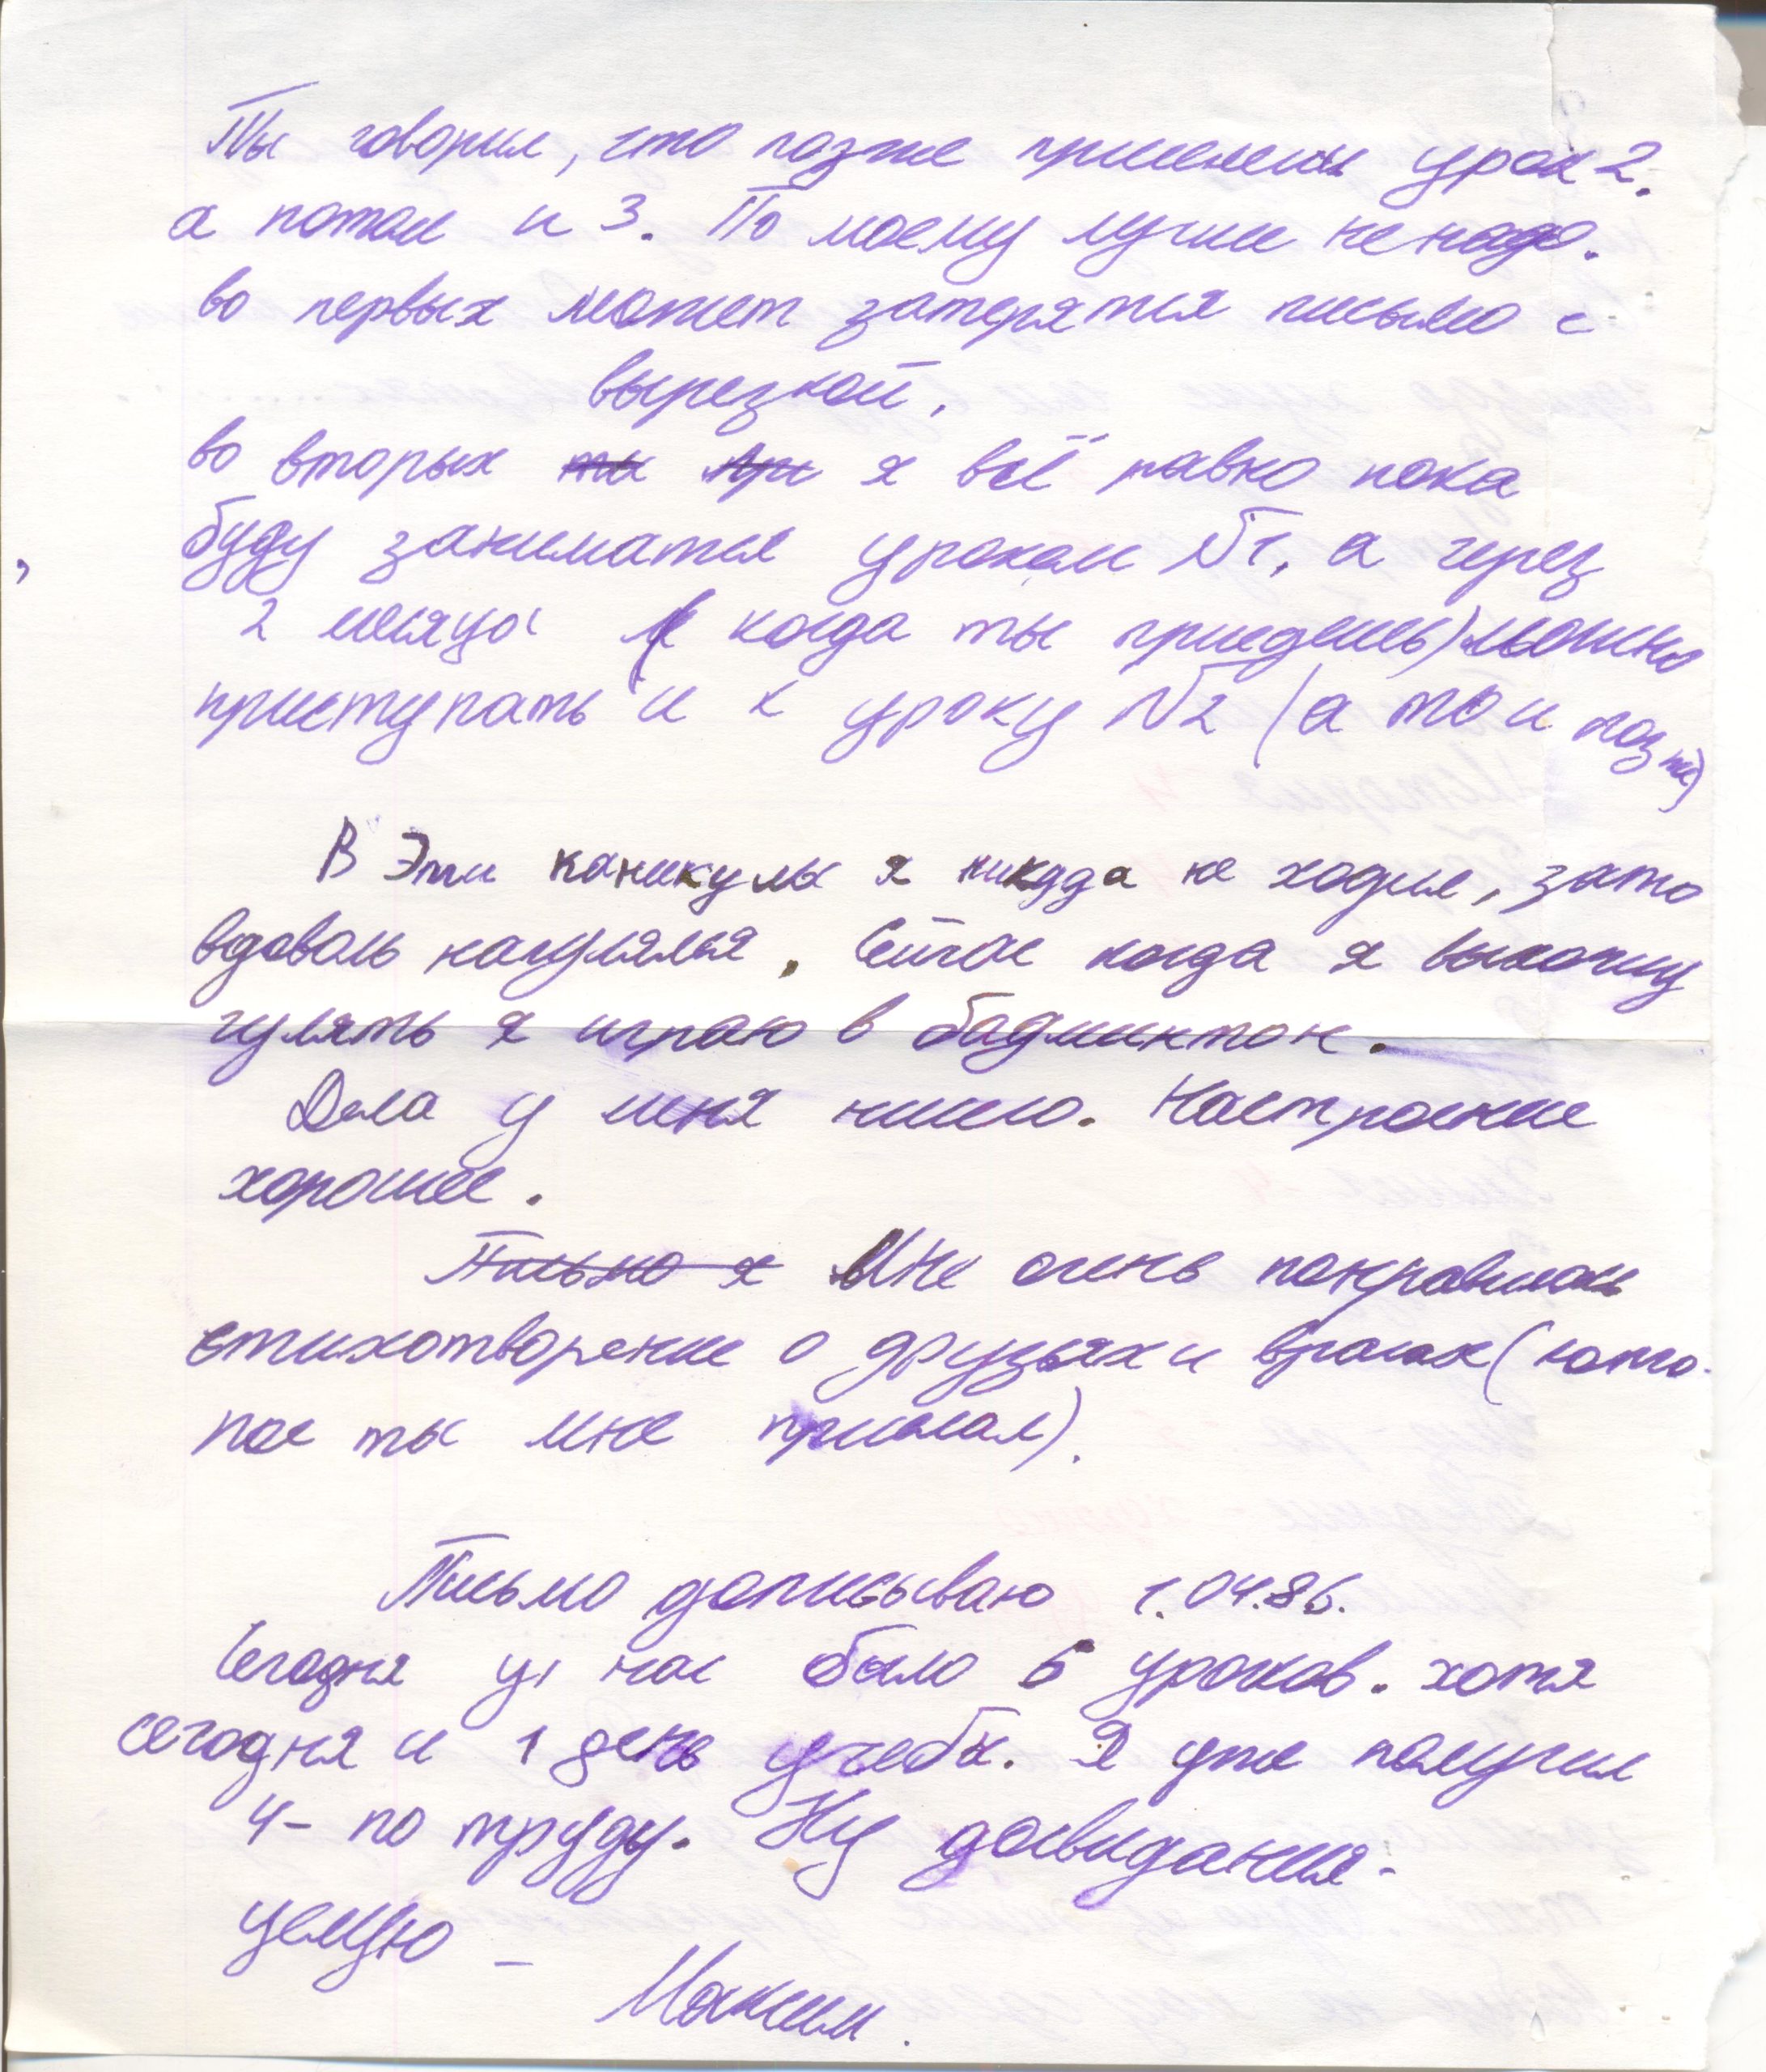 Ты говорил, что позже пришлешь урок 2.
а потом и 3. По моему лучше не надо.
во первых может затерятся письмо с
вырезкой,
во вторых я всё равно пока
буду заниматся уроком №1, а через
2 месяца (когда ты приедешь) можно
приступать и к уроку №2 (а то и позже)
В Эти каникулы я никуда не ходил, зато
вдоволь нагулялся. Сейчас когда я выхожу
гулять я играю в бадминтон.
Дела у меня ничего. Настроение
хорошее.
Письмо я Мне очень понравилось
стихотворение о друзьях и врагах (кото-
рое ты мне прислал).
Письмо дописываю 1.04.86.
Сегодня у нас было 5 уроков. хотя
сегодня и 1 день учебы. Я уже получил
4- по труду. Ну досвидания.
целую –
Максим.